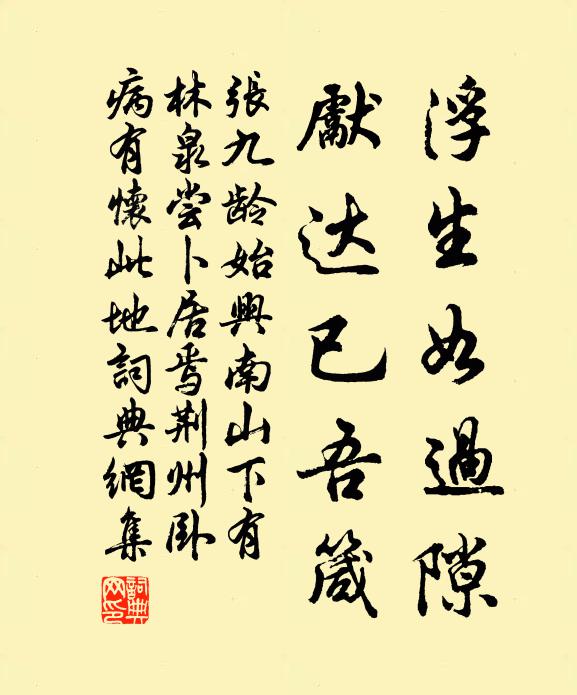 浮生如過隙
獻达已吾箴
張九龄始興南山下有
林泉尝卜居焉荆州卧
病有懷此地詞典網集
詞典网印